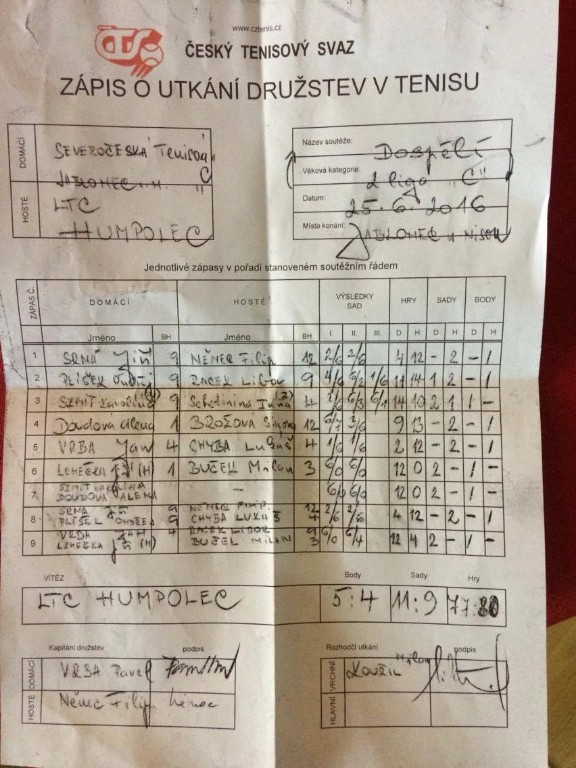 www.cztenis.cz
ČTS
ČESKÝ TENISOVÝ SVAZ
ZÁPIS O UTKÁNÍ DRUŽSTEV V TENISU
DOMÁCÍ
SEVEROČESKÁ TENISOVÁ
JABLONEC n. N. "C"
HOSTÉ
LTC
HUMPOLEC
Název soutěže: Dospělí
Věková kategorie: 2 liga "C"
Datum: 25.6.2016
Místo konání: JABLONEC n NISOU
Jednotlivé zápasy v pořadí stanoveném soutěžním řádem
ZÁPAS Č. DOMÁCÍ HOSTÉ VÝSLEDKY SAD HRY SADY BODY
Jméno BH Jméno BH I. II. III. D H D H D H
1 SRNA Jiří 9 NĚMEC Filip 12 2/6 2/6 4 12 - 2 - 1
2 PLÍŠEK Ondřej 9 RACEK Libor 9 4/6 6/2 1/6 11 14 1 2 - 1
3 SZMIT Karolína 9 Schetinina 4 6/1 14 10 2 1 1 -
4 Doudova Alena 1 BROŽOVA 12 9 13 - 2 - 1
5 VRBA Jan 4 CHYBA Lukáš 4 1/6 1/6 2 12 - 2 - 1
6 LOHEČKA Jiří (H) 1 BUČEK Milan 3 6/0 6/0 12 0 2 - 1 -
7 SZMIT KAROLÍNA - 6/0 6/0 12 0 2 - 1 -
DOUDOVA ALENA
8 SRNA Jiří 9 NĚMEC FILIP 12 2/6 2/6 4 12 - 2 - 1
PLÍŠEK ONDŘEJ 9 CHYBA LUKÁŠ 4
9 VRBA JAN 4 RACEK LIBOR 9 6/0 6/4 12 4 2 - 1 -
LOHEČKA Jiří (H) BUČEK MILAN 3
VÍTĚZ Body Sady Hry
LTC HUMPOLEC 5:4 11:9
Kapitáni družstev podpis
DOMÁCÍ VRBA Pavel
HOSTÉ Němec Filip
Rozhodčí utkání podpis
VRCHNÍ Milan
HLAVNÍ